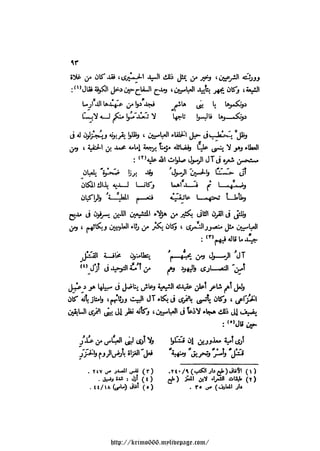 ٩٣
وورثته الشرعيين، وخير من يمثل ذلك السيد الحميرى، فقد كان من غلاة
الشيعة، وكان يجهر بتأييد العباسيين، ومدح السفاح حين دخل الكوفة فقال(١):
دونكموها يا بنى هاشم فجددوا من عهدها الدارسا
دونكموها فالبسوا تاجها لا تعدموا منكم له لابسا
وظل يتقلب فى حبل الخلفاء العباسيين، وظلوا يقربونه ويجزلون له فى
العطاء وهو لا ينسى عليا وفضائله مؤمنا برجعة إمامه محمد بن الحنفية، ومن
مستحسن شعره فى آل الرسول صلوات الله عليه(٢):
أتى حسنا والحسين الرسول وقد برزا ضحوة يلعبان
وضمهما ثم فداهما وكانا لديه بذاك المكان
وطأطأ تحتهما عاتقيه فنعم المطية والراكبان
ونلتقى فى القرن الثانى بكثير من هؤلاء المتشيعين الذين يسرفون فى مديح
العباسيين مثل منصور النمرى، وكان يكثر من رثاء العلويين وبكائهم، ومن
جيد ما قاله فيهم(٣):
آل الرسول ومن يحبهم يتطامنون مخافة القتل
أمن النصارى واليهود وهم من أمة التوحيد فى أزل(٤)
ولعل أهم شاعر أعلن عقيدته الشيعية وعاش يناضل فى سبيلها هو دعبل
الخزاعى، وكان يأتسى بالنمرى فى بكاء آل البيت ورثائهم، وامتاز بأنه كان
يضيف إلى ذلك هجاء لاذعا فى العباسيين، وكأنه نظر إلى بيتى النمرى السابقين
حين قال(٥):
أرى أمية معذورين إن قتلوا ولا أرى لبنى العباس من عذر
قتل وأسر وتحريق ومنهبة فعل الغزاة بأرض الروم والخزر
(١) الأغانى (طبع دار الكتب) ٧/ ٢٤٠.
(٢) طبقات الشعراء لابن المعتز (طبع
دار المعارف) ص ٣٥.
(٣) نفس المصدر ص ٢٤٧.
(٤) أزل: شدة وضيق.
(٥) أغانى (ساسى) ١٨/ ٤٤.
http://krimo666.mylivepage.com/